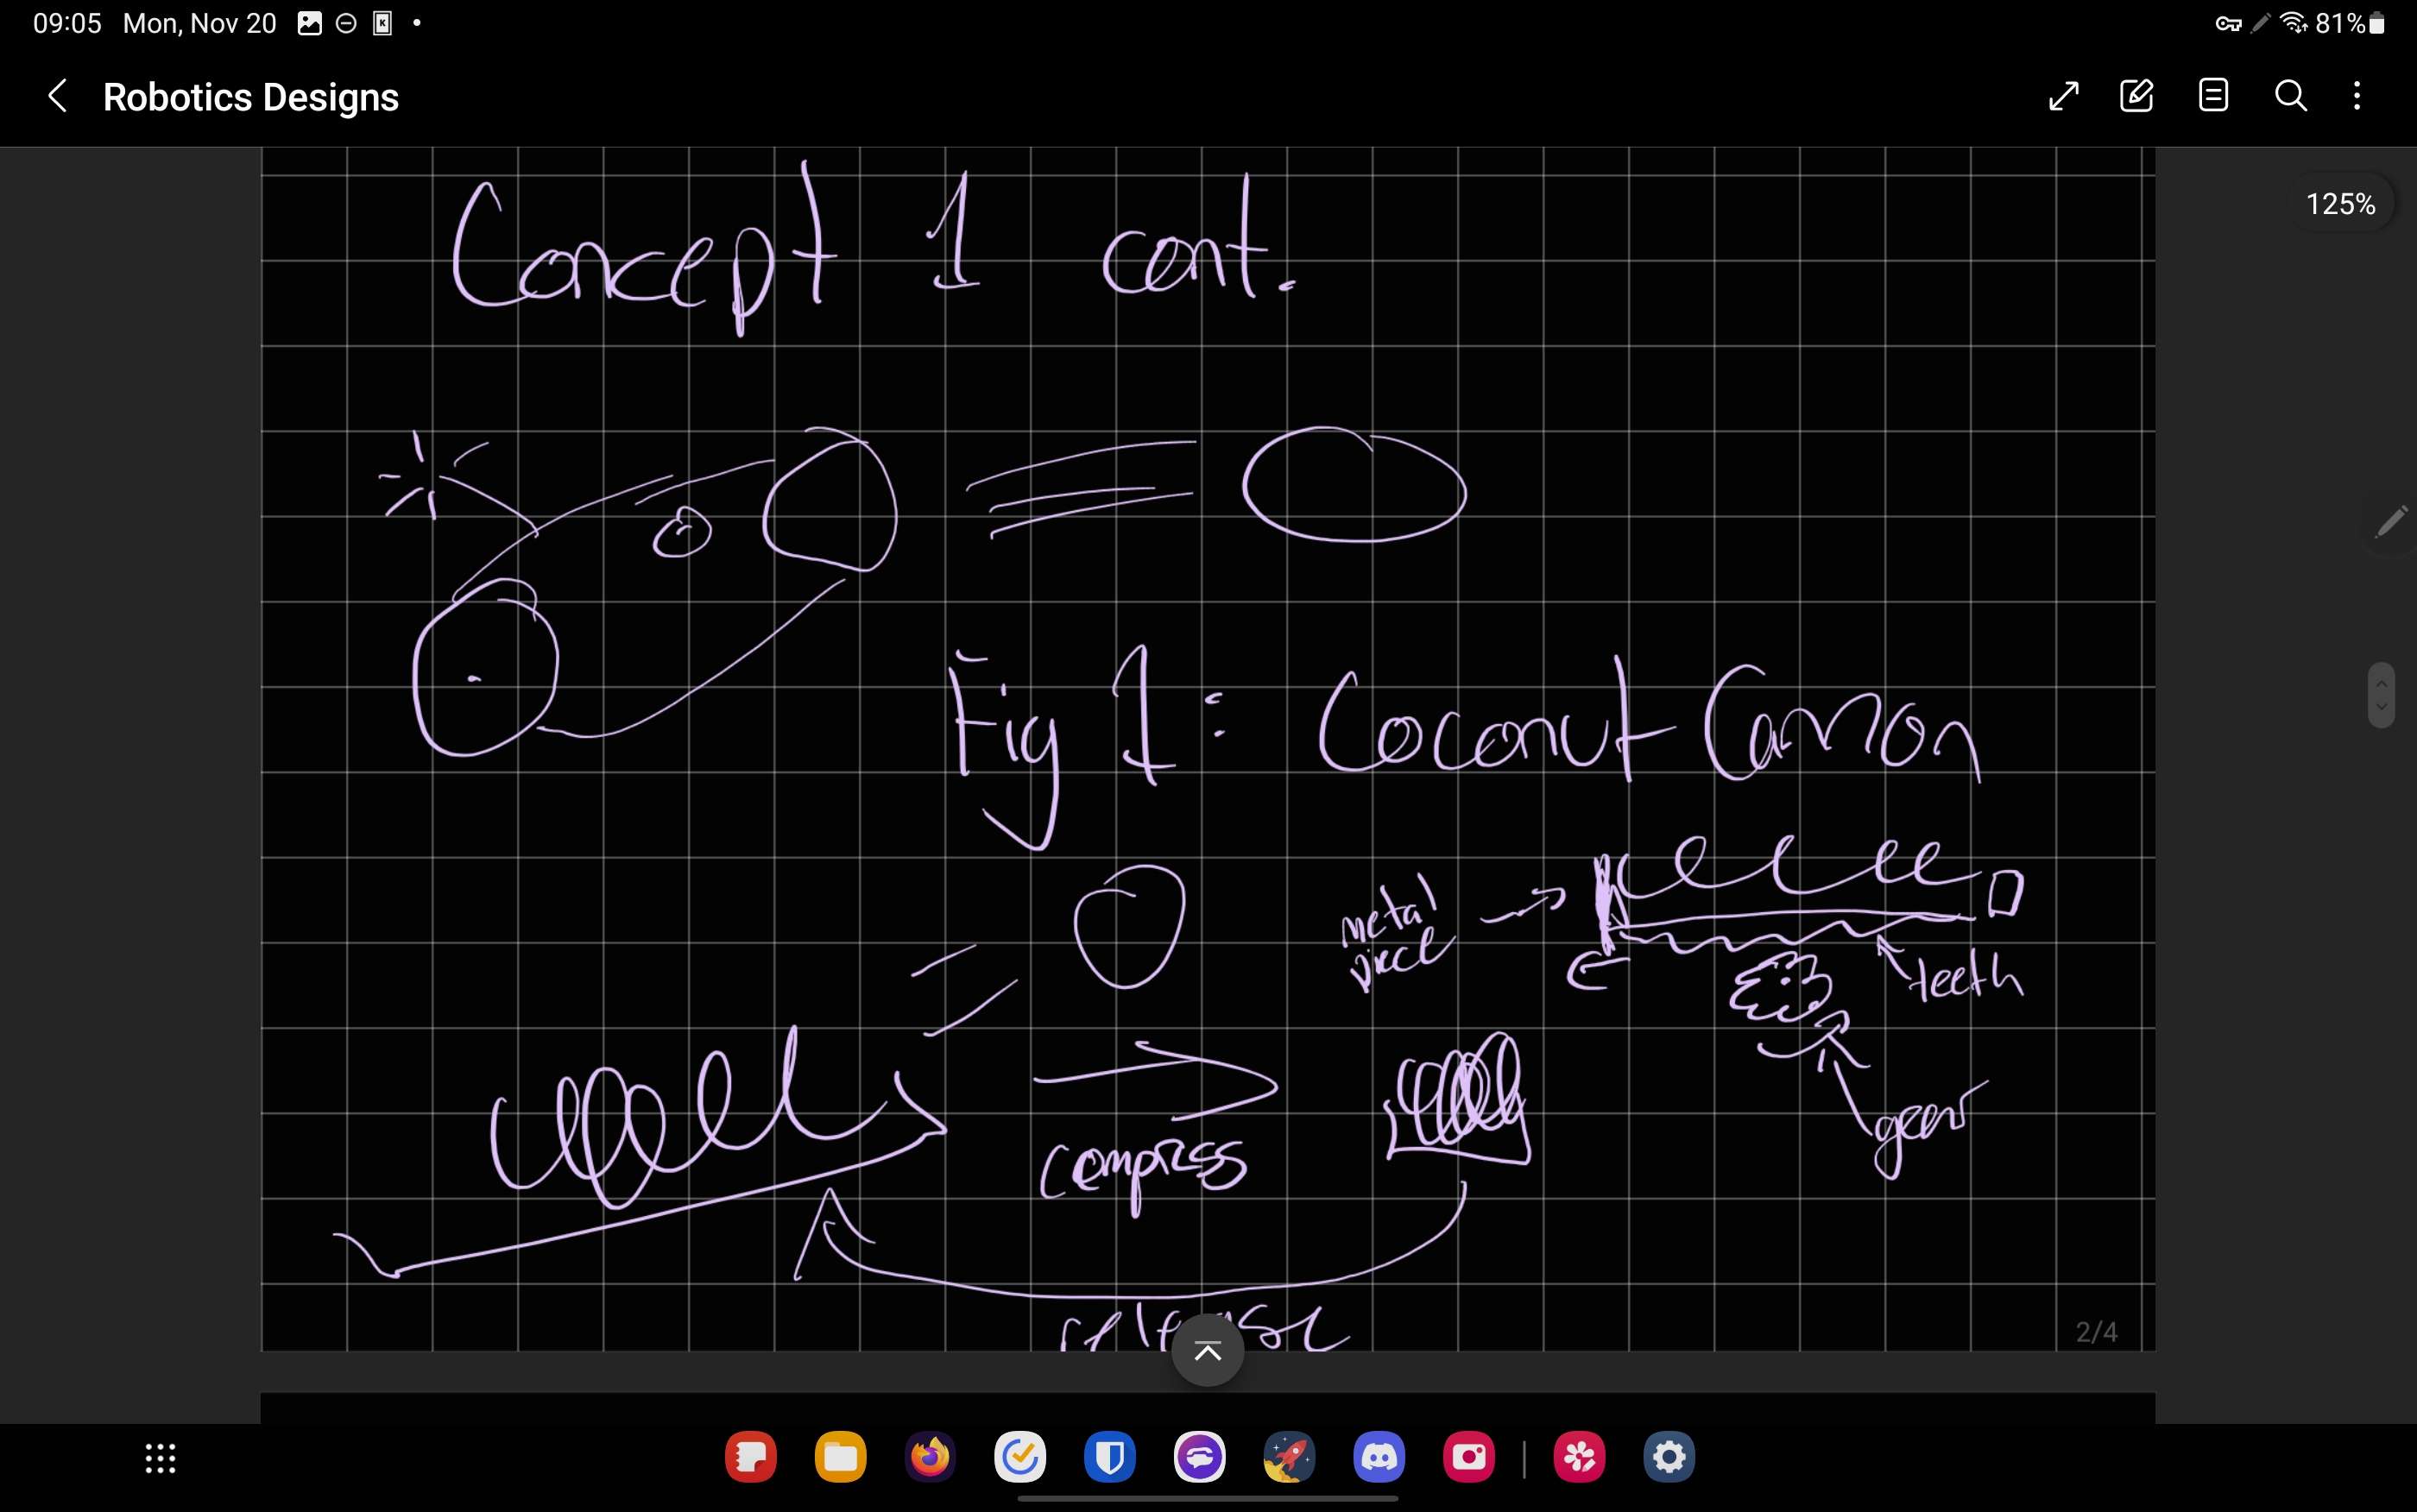 09:05 Mon, Nov 20
81%
Robotics Designs
125%
Concept 1 cont.
Fig 1: Coconut Cannon
metal
piece
teeth
gear
compress
release
2/4